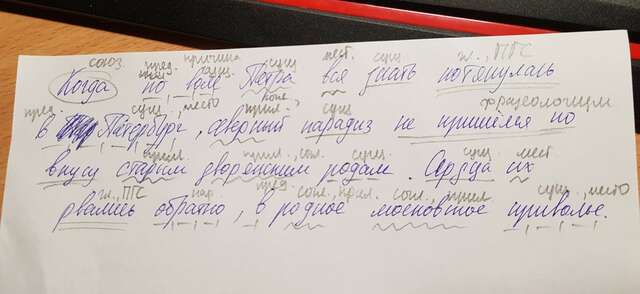 союз пред. причина сущ. мест. сущ. гл., ПГС
Когда по воле Петра вся знать потянулась
пред. сущ., место прил. сущ. фразеологизм
в Петербург, северный парадиз не пришёлся по
прил. прил., согл. сущ. сущ. мест.
вкусу старым дворянским родам. Сердца их
гл., ПГС нар. пред. согл., прил. согл., прил. сущ., место
рвались обратно, в родное московское приволье.